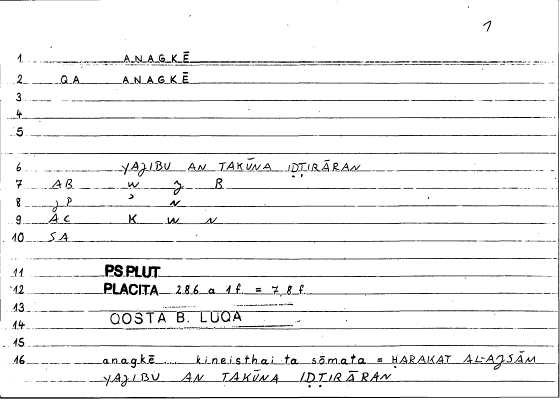 1
1 ANAGKĒ
2 QA ANAGKĒ
3
4
5
6 YAJIBU AN TAKŪNA IḌṬIRĀRAN
7 AB w j B
8 JP ʾ N
9 AC K W N
10 SA
11 PS PLUT
12 PLACITA 286 a 1 f. = 7,8 f.
13
14 QOSTA B. LUQA
15
16 anagkē kineisthai ta sōmata = ḤARAKAT AL-AJSĀM
YAJIBU AN TAKŪNA IḌṬIRĀRAN